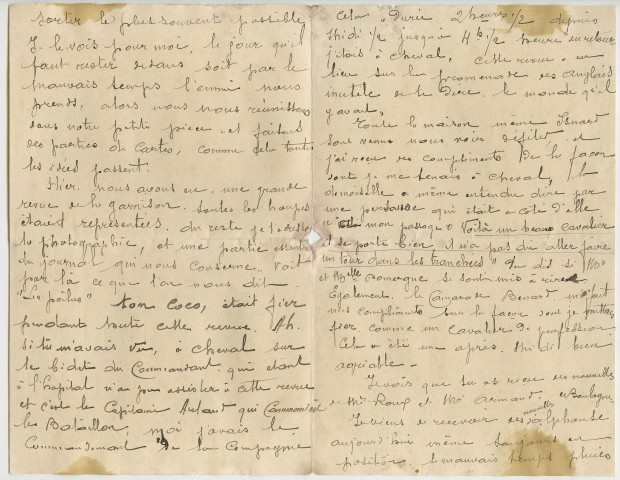 sortir le plus souvent possible,
Je le vois pour moi, le jour qu'il
faut rester dedans soit par le
mauvais temps l'ennui nous
prend, alors nous nous réunissons
dans notre petite pièce et faisons
des parties de cartes, comme cela toutes
les idées passent.
Hier nous avons eu une grande
revue de la garnison. toutes les troupes
étaient représentées. du reste je t'
la photographie, et une partie
du journal qui nous concerne. Voit
par là ce que l'on nous dit
"Les poilus" ton Coco, était fier
pendant toute cette revue. Ah.
si tu m'avais vu, à cheval sur
le bidet du Commandant qui étant
à l'hopital n'a pu assister à cette revue
et c'est le Capitaine qui Commandait
le Bataillon, moi j'avais le
Commandement de la Compagnie
Cela a durée 2 heures 1/2 depuis
Midi 1/2 jusqu'à 4h 1/2 heure en retour
j'étais à cheval, cette revue a eu
lieu sur la promenade des Anglais
inutile de te dire le monde qu'il
y avait,
Toute la maison même Isnard
sont venue nous voir défiler et
j'ai reçu des compliments de la façon
dont je me tenais à cheval, la
demoiselle a même entendu dire par
une personne qui était a côté d'elle
mon passage "Voilà un beau cavalier
il se porte bien, il n'a pas dû aller faire
un tour dans les tranchées" Tu dis si Mr
et Melle se sont mis à rire
Egalement le Camarade Benart m'a fait
mes compliments sur la façon dont je
fier comme un cavalier de profession.
Cela a été une après Midi bien
agréable -
Je vois que tu as reçu des nouvelles
de Mr Roux et Mr Armand, et Boulogne
Je viens de recevoir des nouvelles d'Alphonse
aujourd'hui même toujours en
position, le mauvais temps